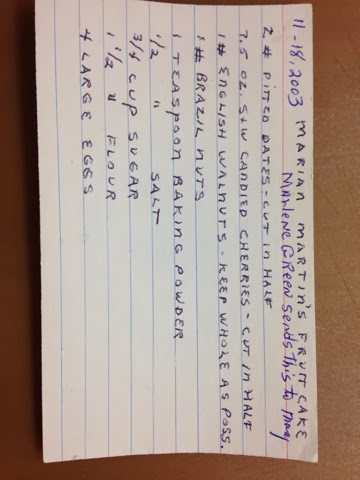 11-18, 2003 MARIAN MARTIN'S FRUIT CAKE
Marlene Green sends this to Mary
2 # PITTED DATES - CUT IN HALF
7.5 OZ. S&W CANDIED CHERRIES - CUT IN HALF
1 # ENGLISH WALNUTS - KEEP WHOLE AS POSS.
1 # BRAZIL NUTS
1 TEASPOON BAKING POWDER
1/2 " SALT
3/4 CUP SUGAR
1 1/2 " FLOUR
4 LARGE EGGS